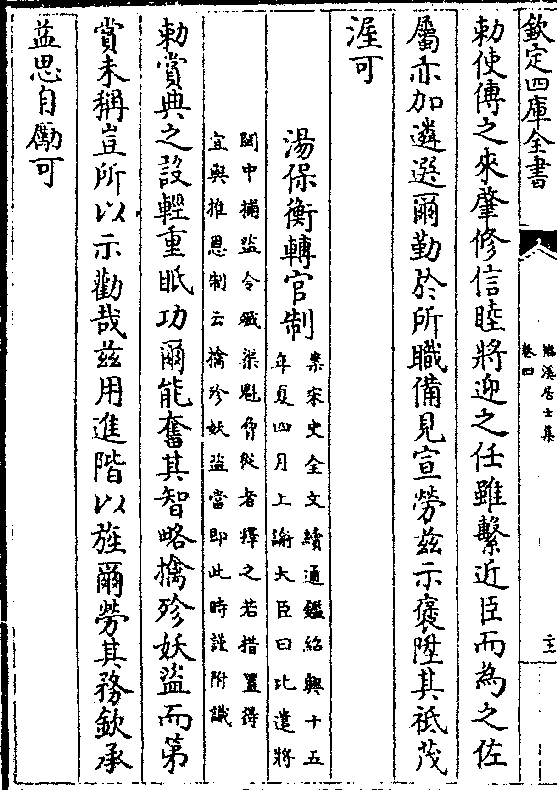 欽定四庫全書
卷四
勅使傳之來肇修信睦將迎之任雖繫近臣而為之佐
屬亦加遴選爾勤於所職備見宣勞兹示褒陞其祇茂
渥可
湯保衡轉官制
案宋史全文續通鑑紹興十五
年夏四月上諭大臣曰比遣將
閩中捕盜令殱渠魁脅從者釋之若措置得
宜與推恩制云擒殄妖盜當即此時謹附識
勅賞典之設輕重眡功爾能奮其智略擒殄妖盜而第
賞未稱豈所以示勸哉兹用進階以旌爾勞其務欽承
益思自勵可